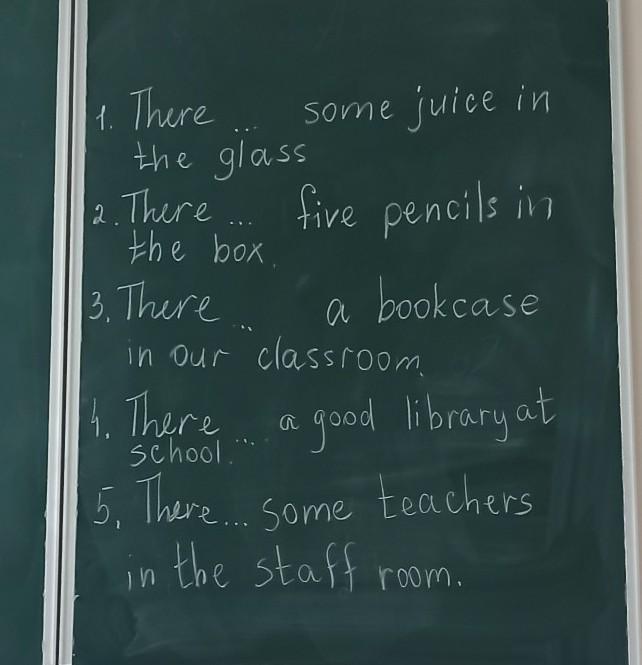 1. There ... some juice in
the glass
2. There ... five pencils in
the box.
3. There ... a bookcase
in our classroom.
4. There ... a good library at
school.
5. There... some teachers
in the staff room.